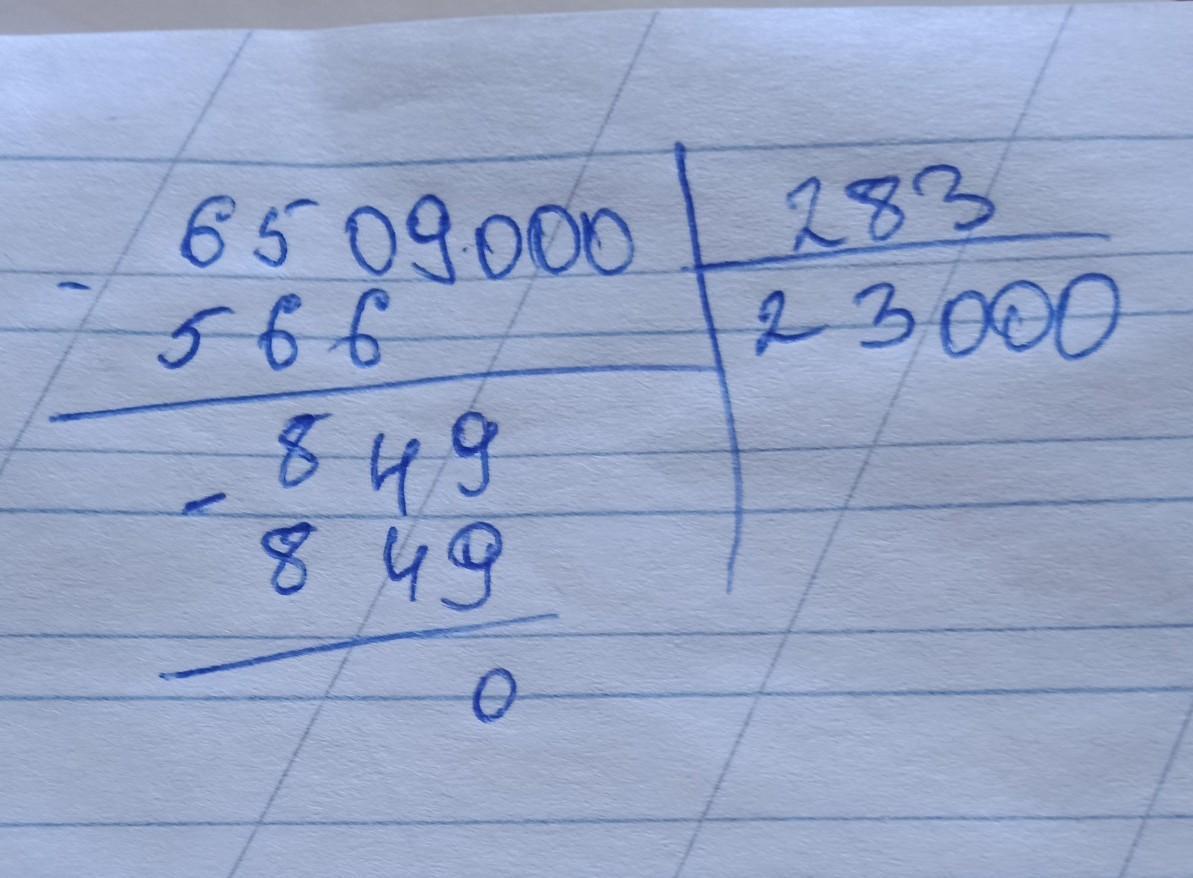 6509000 283
- 566 23000
849
- 849
0